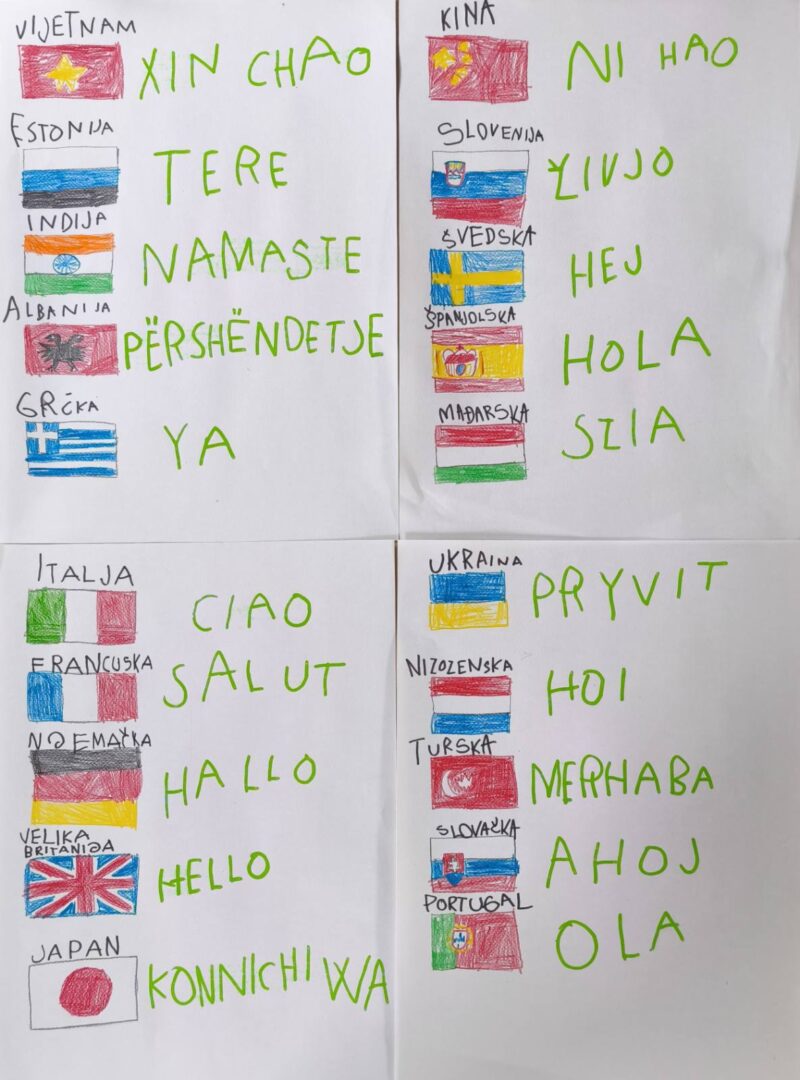 VIJETNAM
XIN CHAO
ESTONIJA
TERE
INDIJA
NAMASTE
ALBANIJA
PËRSHËNDETJE
GRČKA
YA
KINA
NI HAO
SLOVENIJA
ŽIVJO
ŠVEDSKA
HEJ
ŠPANJOLSKA
HOLA
MAĐARSKA
SZIA
ITALJA
CIAO
FRANCUSKA
SALUT
NJEMAČKA
HALLO
VELIKA
BRITANIJA
HELLO
JAPAN
KONNICHI WA
UKRAINA
PRYVIT
NIZOZENSKA
HOI
TURSKA
MERHABA
SLOVAČKA
AHOJ
PORTUGAL
OLA